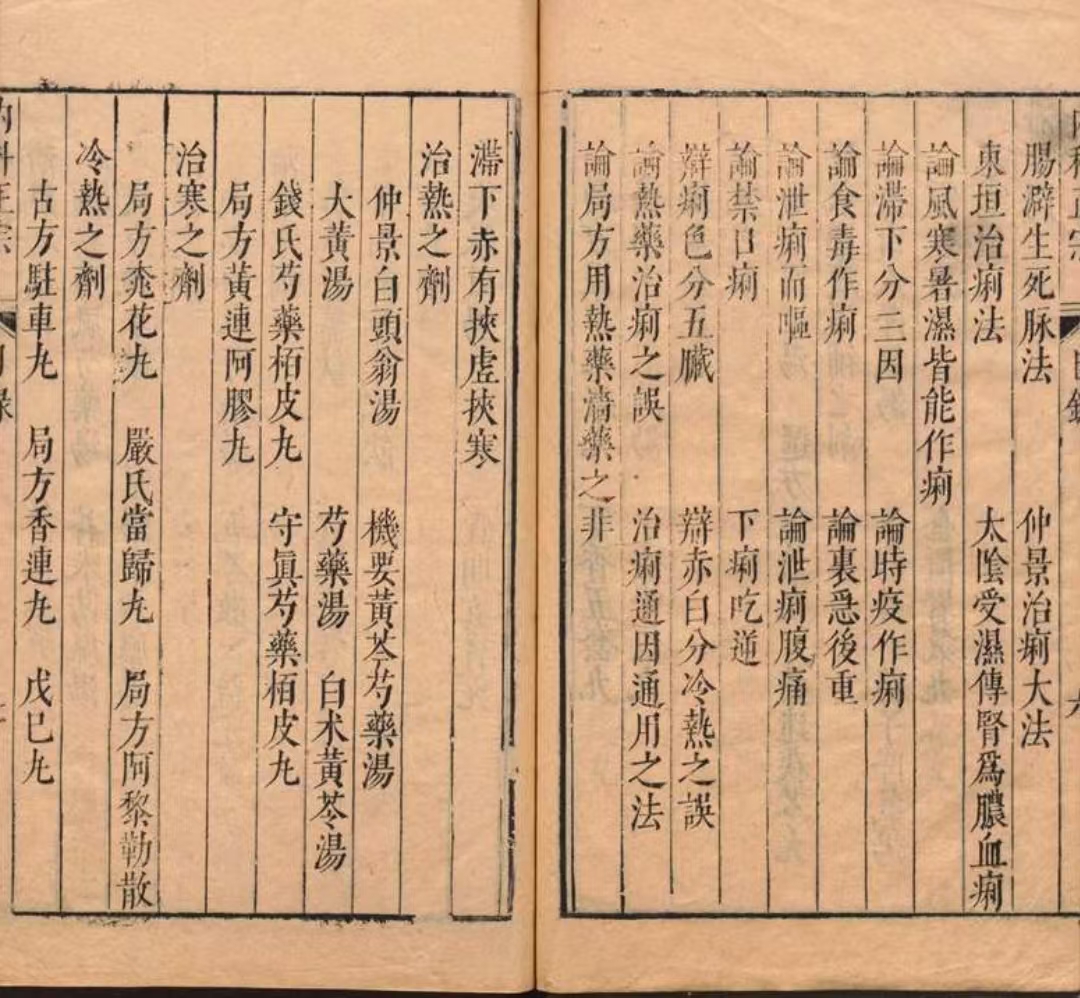 腸澼生死脉法　仲景治痢大法
東垣治痢法　太陰受濕傳腎爲膿血痢
論風寒暑濕皆能作痢
論滯下分三因　論時疫作痢
論食毒作痢　論裏急後重
論泄痢而嘔　論泄痢腹痛
論禁口痢　下痢吃逆
辯痢色分五臟　辯赤白分冷熱之誤
論熱藥治痢之誤　治痢通因通用之法
論局方用熱藥濇藥之非
滯下赤有挾虛挾寒
治熱之劑
仲景白頭翁湯　機要黃芩芍藥湯
大黃湯　芍藥湯　白朮黃芩湯
錢氏芍藥栢皮丸　守眞芍藥栢皮丸
局方黃連阿膠丸
治寒之劑
局方桃花丸　嚴氏當歸丸　局方阿黎勒散
冷熱之劑
古方駐車丸　局方香連丸　戊巳丸